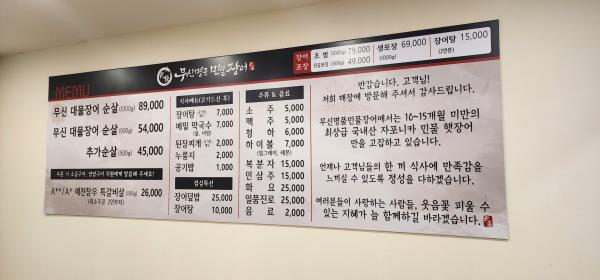 무신명품 민물장어
장어포장
초벌 (1000g) 79,000
(500g) 49,000
생포장 (1000g) 69,000
장어탕 (2인분) 15,000
MENU
무신 대물장어 순살 (1000g) 89,000
무신 대물장어 순살 (500g) 54,000
추가순살 (500g) 45,000
A++/A+ 예천참우 특갈비살 26,000
(최소주문 2인부터)
식사메뉴(고기드신 후)
장어탕 7,000
메밀 막국수 7,000
(물, 비빔)
된장찌개 2,000
누룽지 2,000
공기밥 1,000
점심특선
장어덮밥 25,000
장어탕 10,000
주류 & 음료
소주 5,000
맥주 5,000
청하 6,000
하이볼 7,000
(얼그레이, 레몬)
복분자 15,000
인삼주 15,000
화요 25,000
일품진로 25,000
음료 2,000
반갑습니다. 고객님!
저희 매장에 방문해 주셔서 감사드립니다.
무신명품민물장어에서는 10~15개월 미만의
최상급 국내산 자포니카 민물 햇장어
만을 고집하고 있습니다.
언제나 고객님들의 한 끼 식사에 만족감을
느끼실 수 있도록 정성을 다하겠습니다.
여러분들이 사랑하는 사람들, 웃음꽃 피울 수
있는 지혜가 늘 함께하길 바라겠습니다.